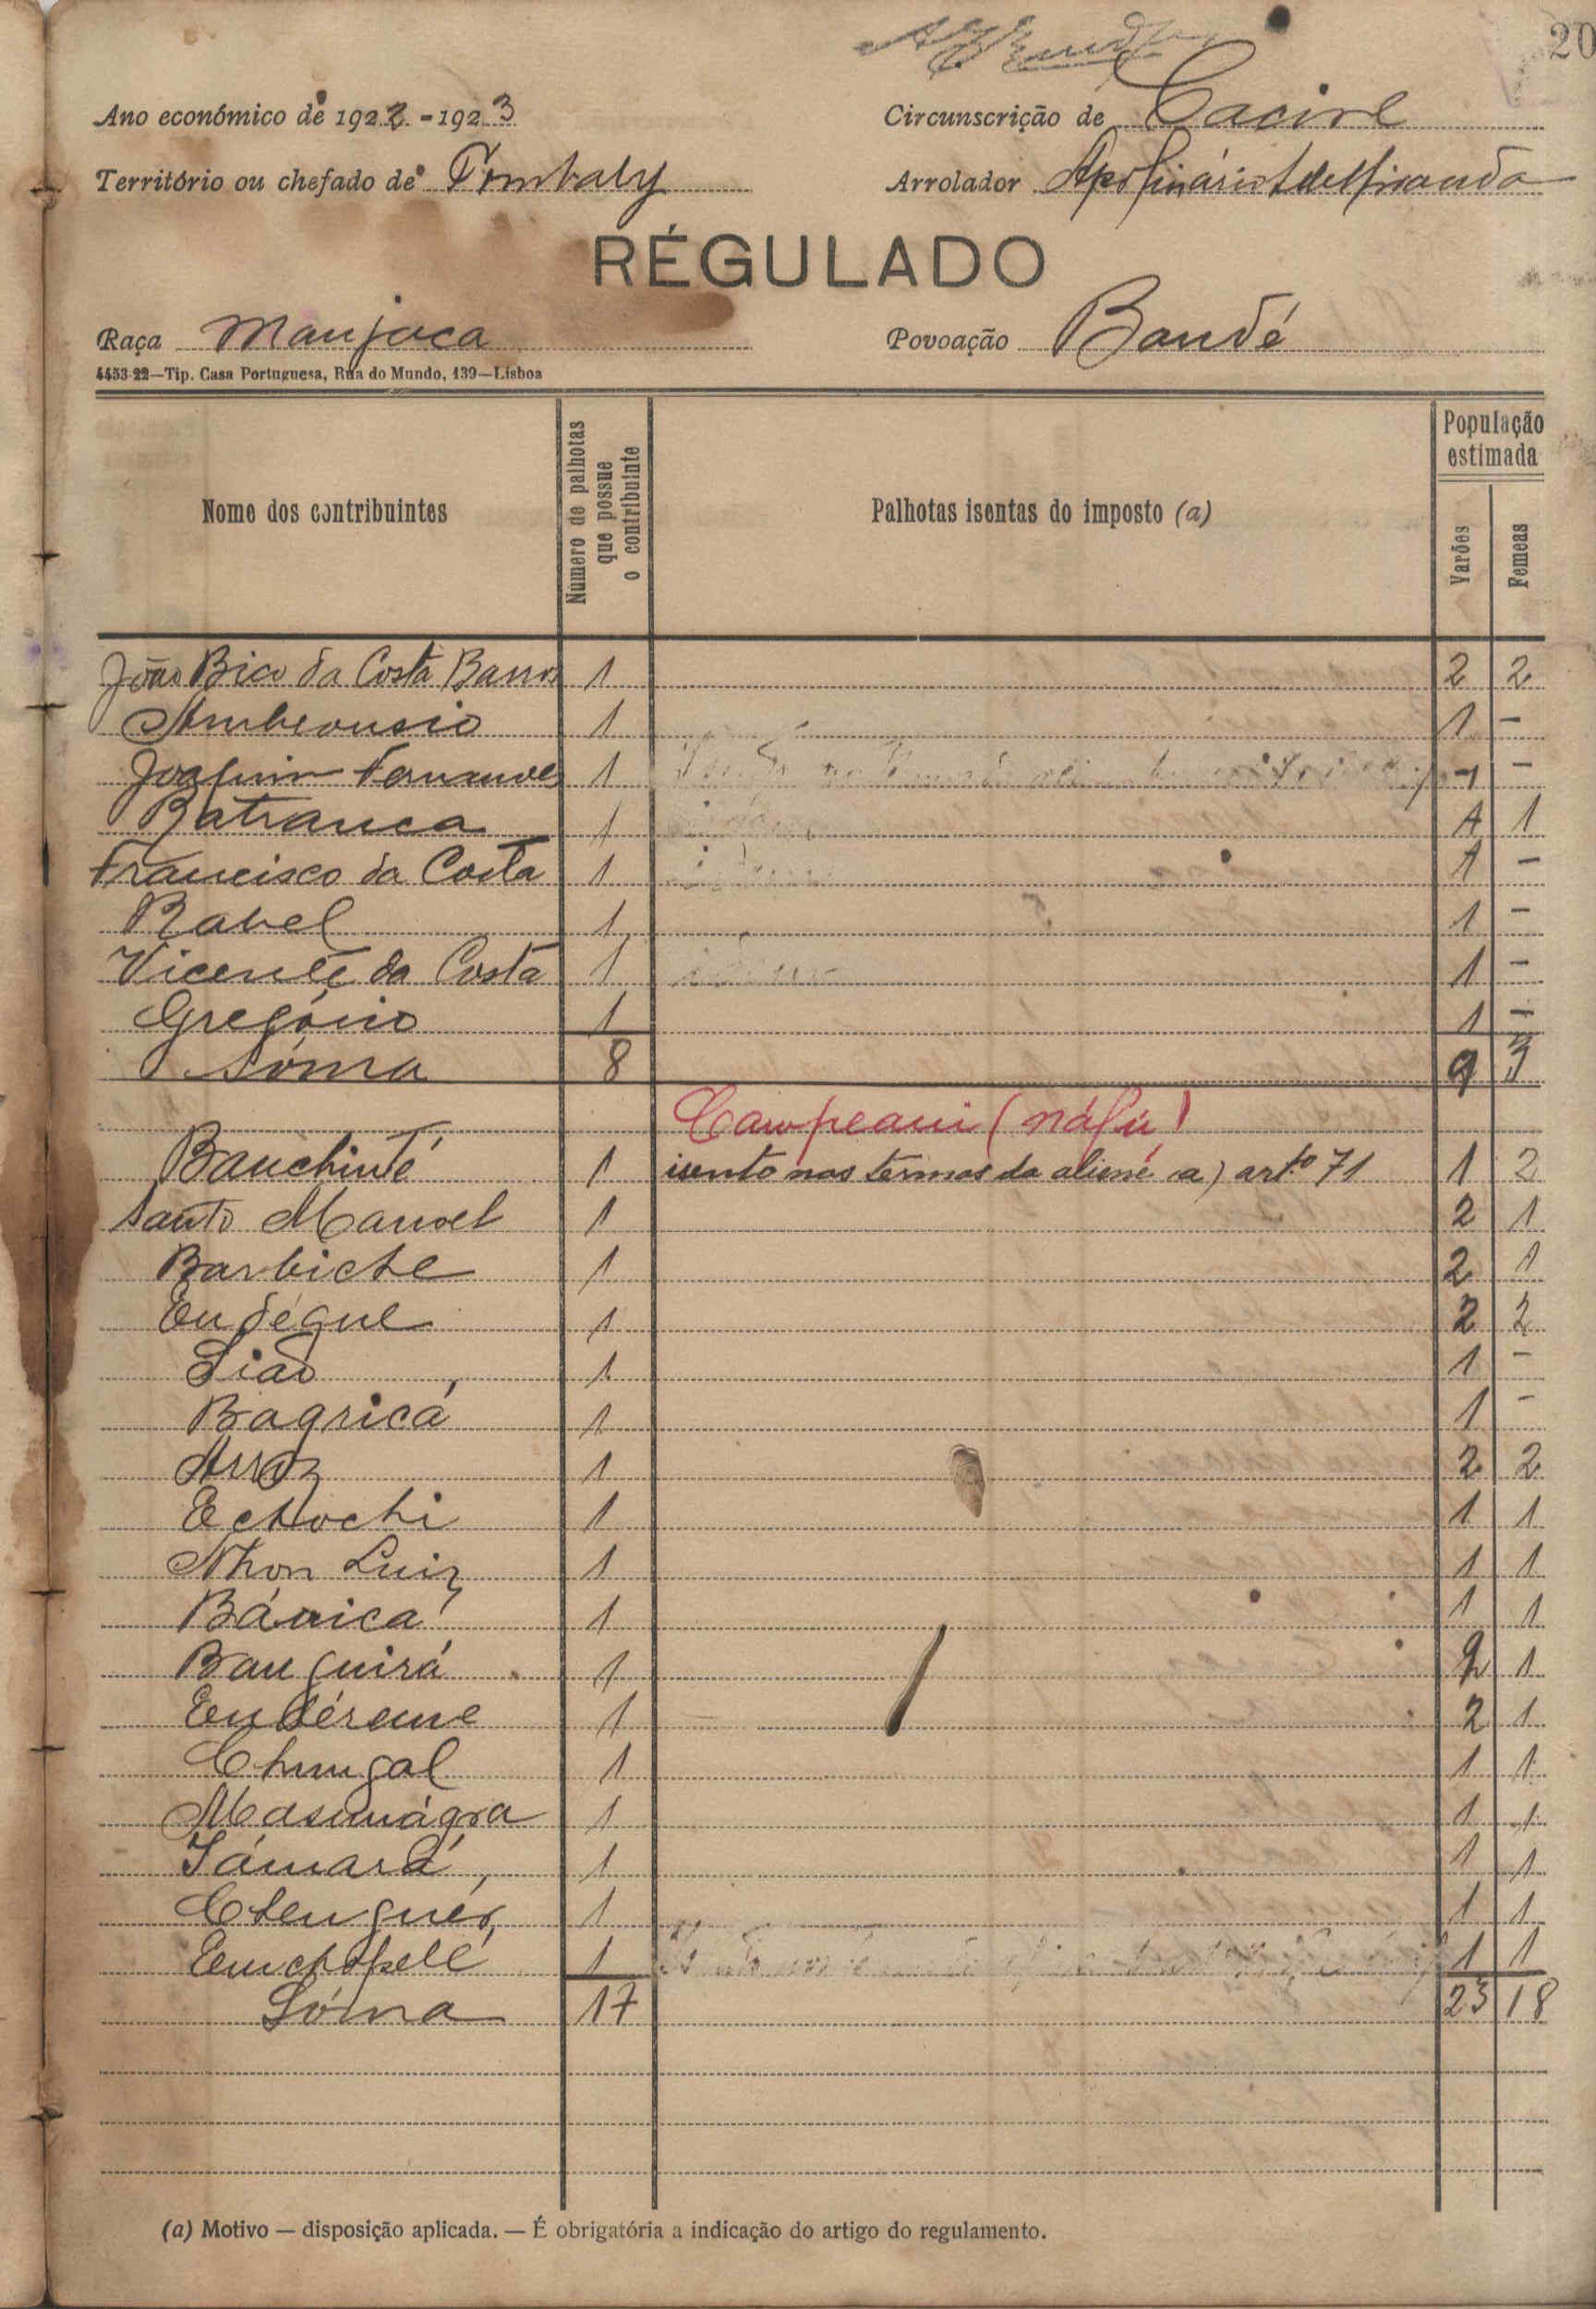 20
Ano económico de 1922-1923 Circunscrição de Cacine
Território ou chefado de Tombaly Arrolador Apolinário
RÉGULADO
Raça Manjaca Povoação Bandé
4453-22—Tip. Casa Portuguesa, Rua do Mundo, 139—Lisboa
Nome dos contribuintes Número de palhotas que possue o contribuinte Palhotas isentas do imposto (a) População estimada Varões Femeas
João Bico da Costa Barros 1 2 2
Ambrousio 1 1 -
Joaquim Fernandes 1 1 -
Batranca 1 1 1
Francisco da Costa 1 1 -
Rabel 1 1 -
Vicente da Costa 1 1 -
Gregório 1 1 -
Sóma 8 9 3
Campeani (náfú)
Banchinté 1 isento nos termos da aliené a) artº 71 1 2
Santo Manoel 1 2 1
Barbiche 1 2 1
Endégue 1 2 2
Lião 1 1 -
Bagricá 1 1 -
Arroz 1 2 2
Echochi 1 1 1
Nhon Luiz 1 1 1
Bánica 1 1 1
Banguirá 1 2 1
Endéreme 1 2 1
Chungal 1 1 1
Masunágra 1 1 1
Támará 1 1 1
Chengués 1 1 1
Emchopelé 1 1 1
Sóma 17 23 18
(a) Motivo — disposição aplicada. — É obrigatória a indicação do artigo do regulamento.